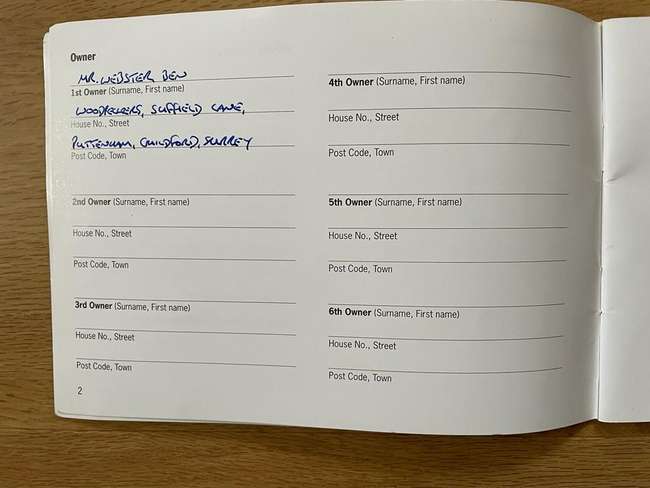 Owner
MR. WEBSTER, BEN
1st Owner (Surname, First name)
WOODPECKERS, SUFFIELD LANE,
House No., Street
PUTTENHAM, GUILDFORD, SURREY
Post Code, Town
2nd Owner (Surname, First name)
House No., Street
Post Code, Town
3rd Owner (Surname, First name)
House No., Street
Post Code, Town
2
4th Owner (Surname, First name)
House No., Street
Post Code, Town
5th Owner (Surname, First name)
House No., Street
Post Code, Town
6th Owner (Surname, First name)
House No., Street
Post Code, Town